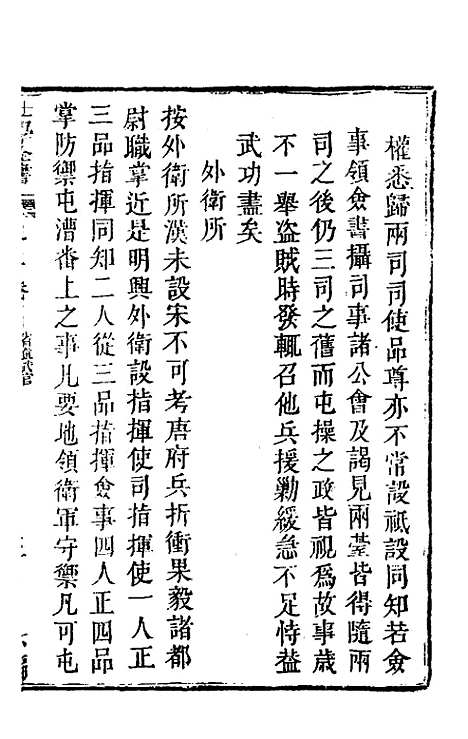 權悉歸兩司司使品尊亦不常設祗設同知若僉
事領僉書攝司事諸公會及謁見兩臺皆得隨兩
司之後仍三司之舊而屯操之政皆視爲故事歲
不一舉盜賊時發輒召他兵援勦緩急不足恃葢
武功盡矣
外衛所
按外衛所漢未設宋不可考唐府兵折衝果毅諸都
尉職掌近是明興外衛設指揮使司指揮使一人正
三品指揮同知二人從三品指揮僉事四人正四品
掌防禦屯漕番上之事凡要地領衛軍守禦凡可屯